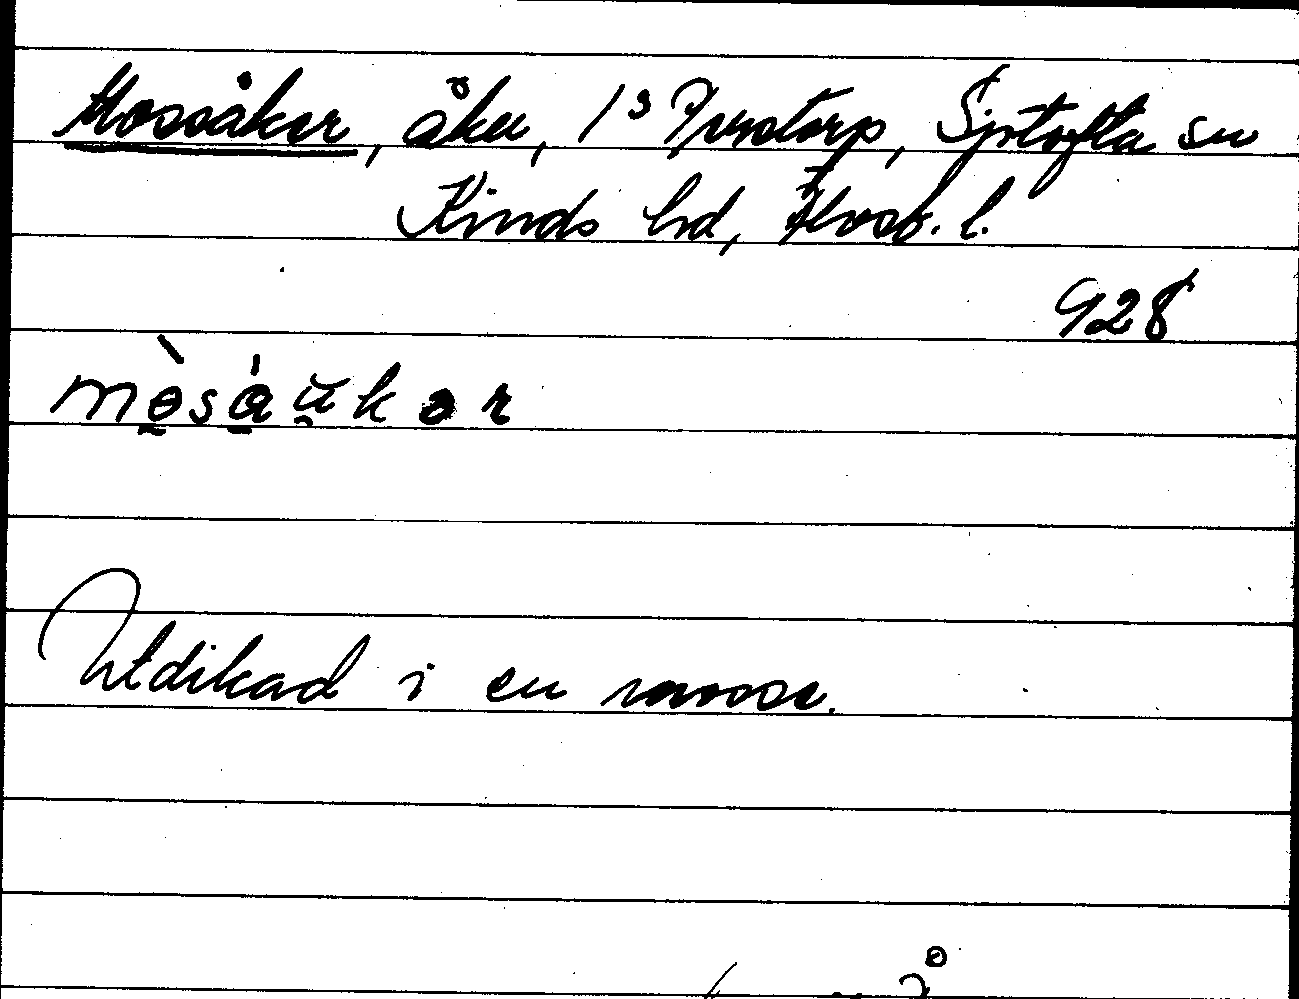 Mossåker, åker, 1³ Purstorp, Sjötofta sn
Kinds hd, Älvsb. l.
928
mòsàu̯kər
Utdikad i en mosse.